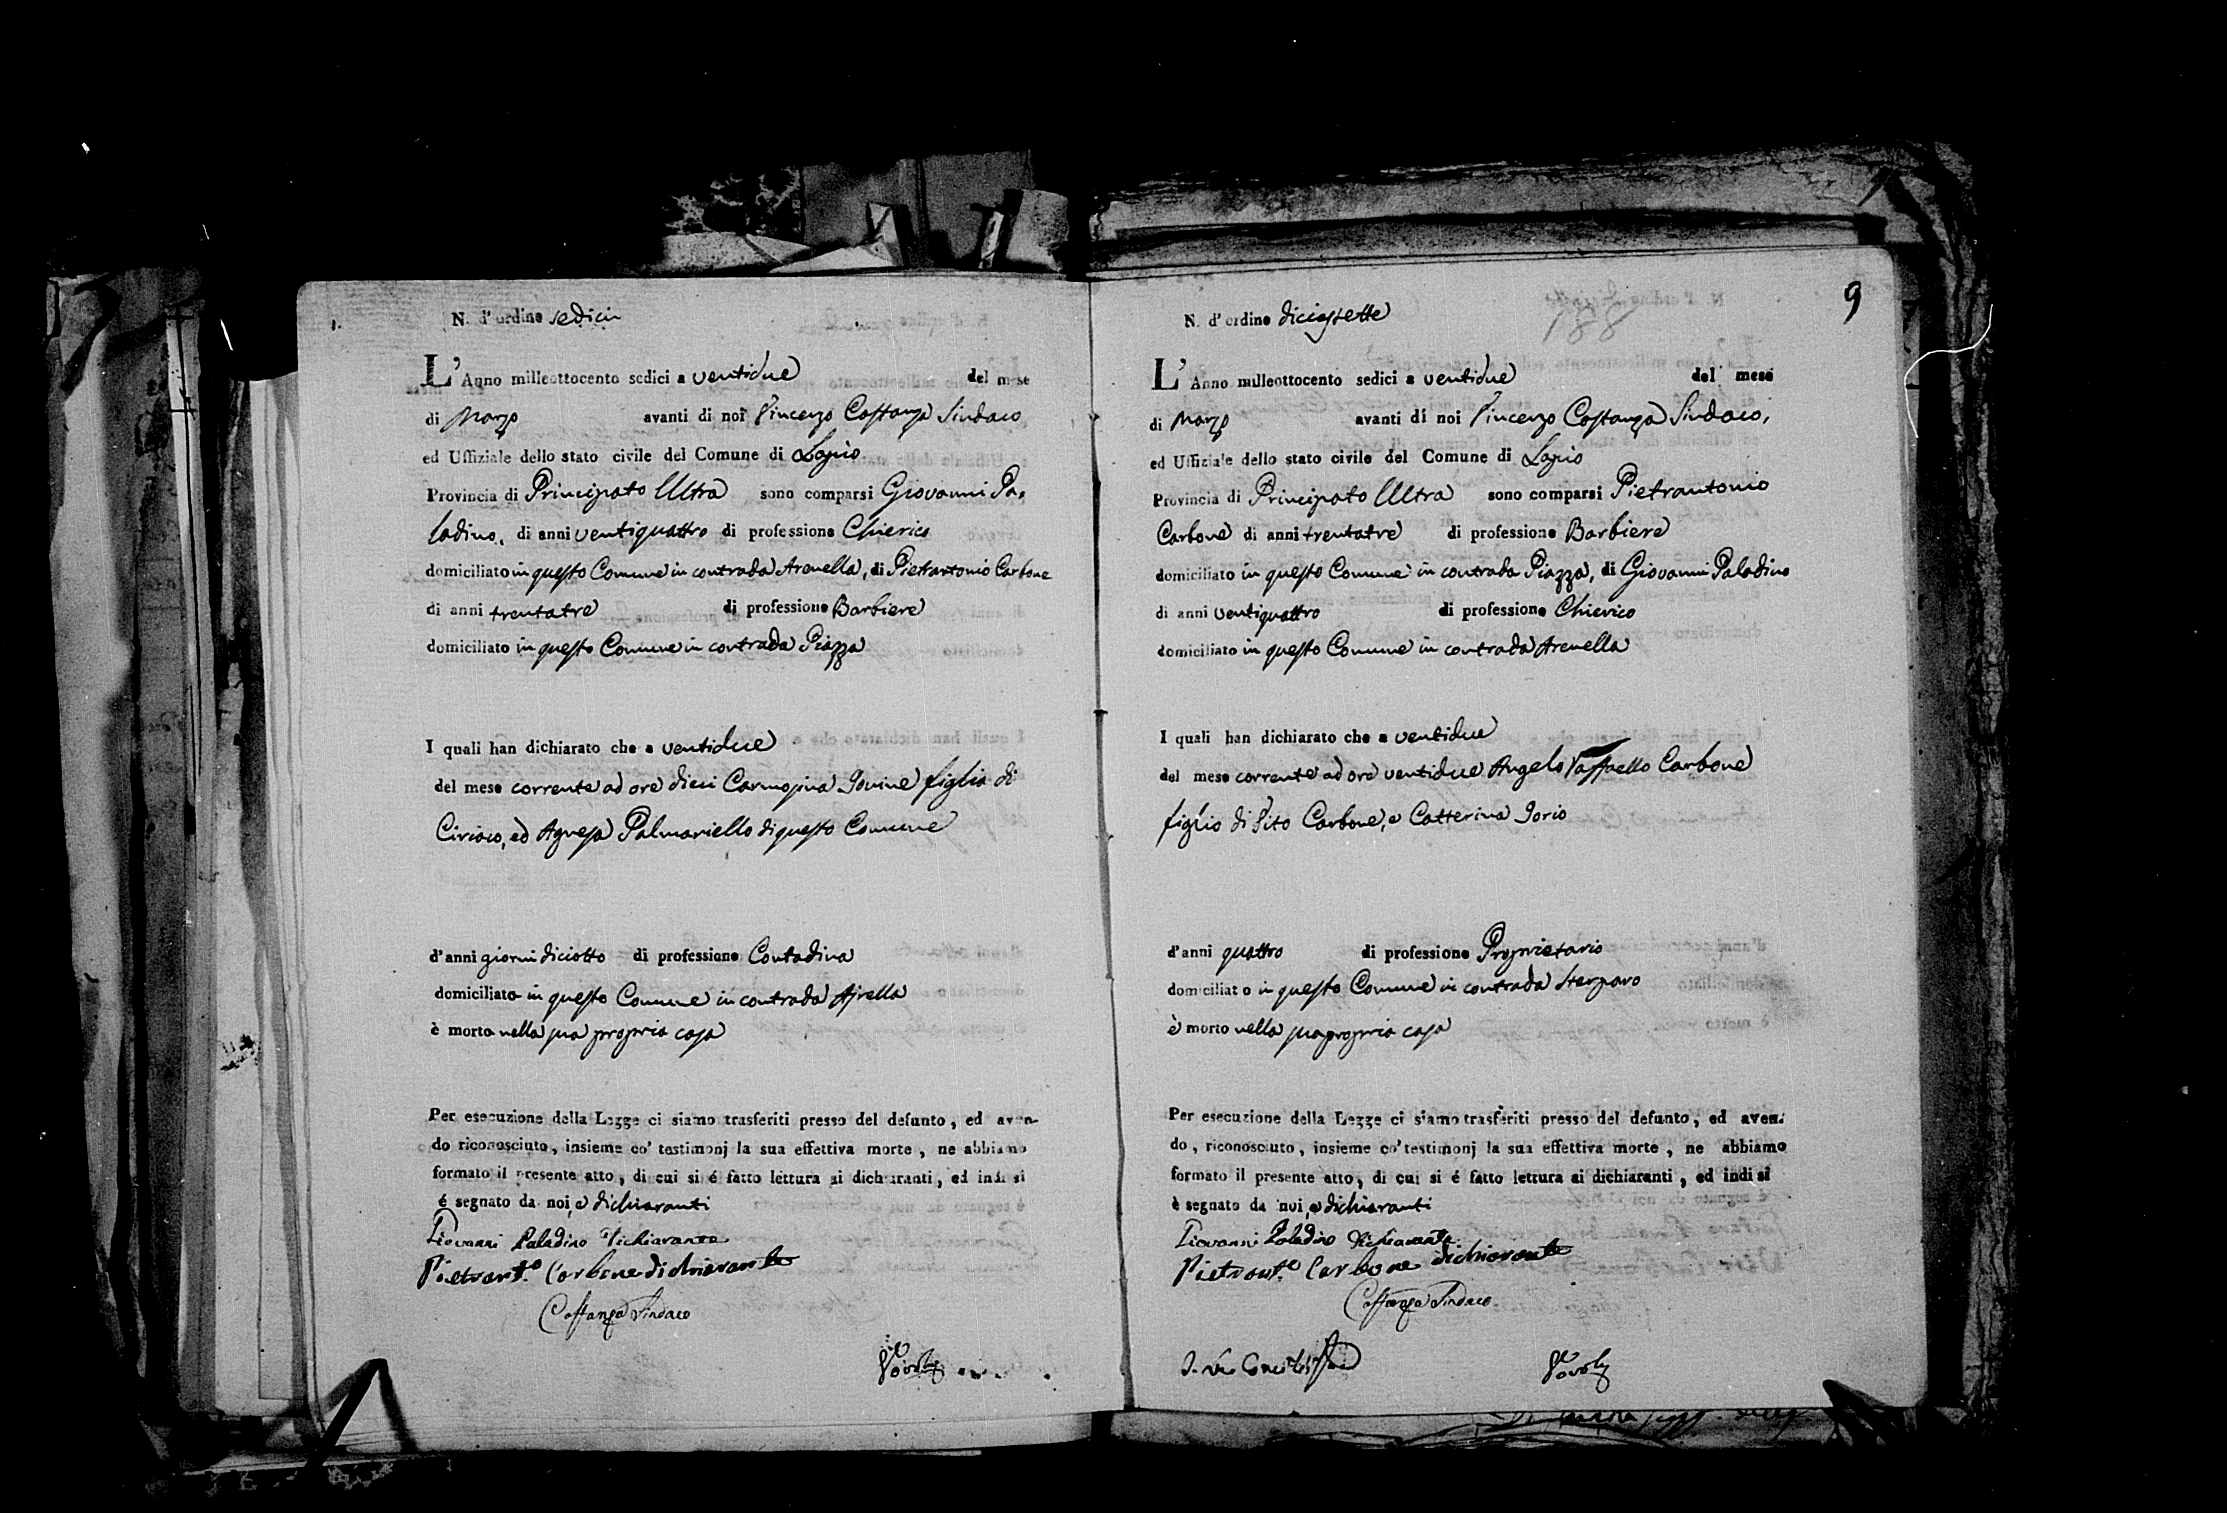 N. d'ordine sedici
L'Anno milleottocento sedici a ventidue del mese
di Marzo avanti di noi Vincenzo Costanza Sindaco
ed Uffiziale dello stato civile del Comune di Lapio
Provincia di Principato Ultra sono comparsi Giovanni Pa-
ladino, di anni ventiquattro di professione Chierico
domiciliato in questo Comune in contrada Arenella, di Pietrantonio Carbone
di anni trentatre di professione Barbiere
domiciliato in questo Comune in contrada Piazza
I quali han dichiarato che a ventidue
del mese corrente ad ore dieci Carmosina Iovine figlia di
Ciriaco, ed Agnesa Palmariello di questo Comune
d'anni giorni diciotto di professione Contadina
domiciliato in questo Comune in contrada Ajrella
è morto nella sua propria casa
Per esecuzione della Legge ci siamo trasferiti presso del defunto, ed aven-
do riconosciuto, insieme co' testimonj la sua effettiva morte, ne abbiamo
formato il presente atto, di cui si é fatto lettura ai dichiaranti, ed indi si
é segnato da noi, e dichiaranti
Giovanni Paladino Dichiarante
Pietrant.º Carbone dichiarante
Costanza Sindaco
9
N. d'ordine diciassette
L'Anno milleottocento sedici a ventidue del mese
di Marzo avanti di noi Vincenzo Costanza Sindaco,
ed Uffiziale dello stato civile del Comune di Lapio
Provincia di Principato Ultra sono comparsi Pietrantonio
Carbone di anni trentatre di professione Barbiere
domiciliato in questo Comune in contrada Piazza, di Giovanni Paladino
di anni ventiquattro di professione Chierico
domiciliato in questo Comune in contrada Arenella
I quali han dichiarato che a ventidue
del mese corrente ad ore ventidue Angelo Raffaello Carbone
figlio di Vito Carbone, e Catterina Iorio
d'anni quattro di professione Proprietario
domiciliato in questo Comune in contrada Sterparo
è morto nella sua propria casa
Per esecuzione della Legge ci siamo trasferiti presso del defunto, ed aven-
do, riconosciuto, insieme co' testimonj la sua effettiva morte, ne abbiamo
formato il presente atto, di cui si é fatto lettura ai dichiaranti, ed indi si
è segnato da noi, e dichiaranti
Giovanni Paladino Dichiarante
Pietrant.º Carbone dichiarante
Costanza Sindaco